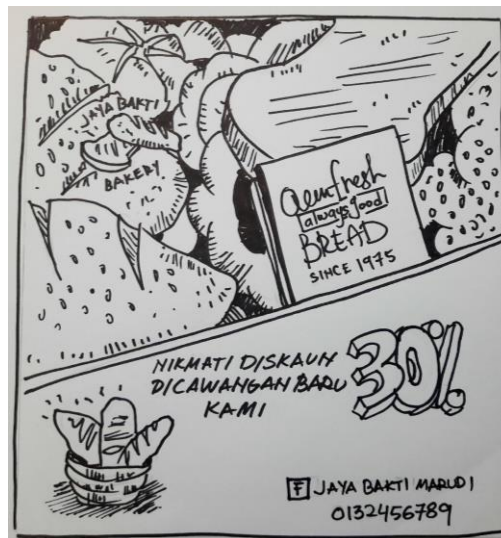 JAYA BAKTI
BAKERY
always food
BREAD
SINCE 1975
NIKMATI DISKAUN
DICAWANGAN BARU
KAMI
30%
F JAYA BAKTI MARUDI
0132456789